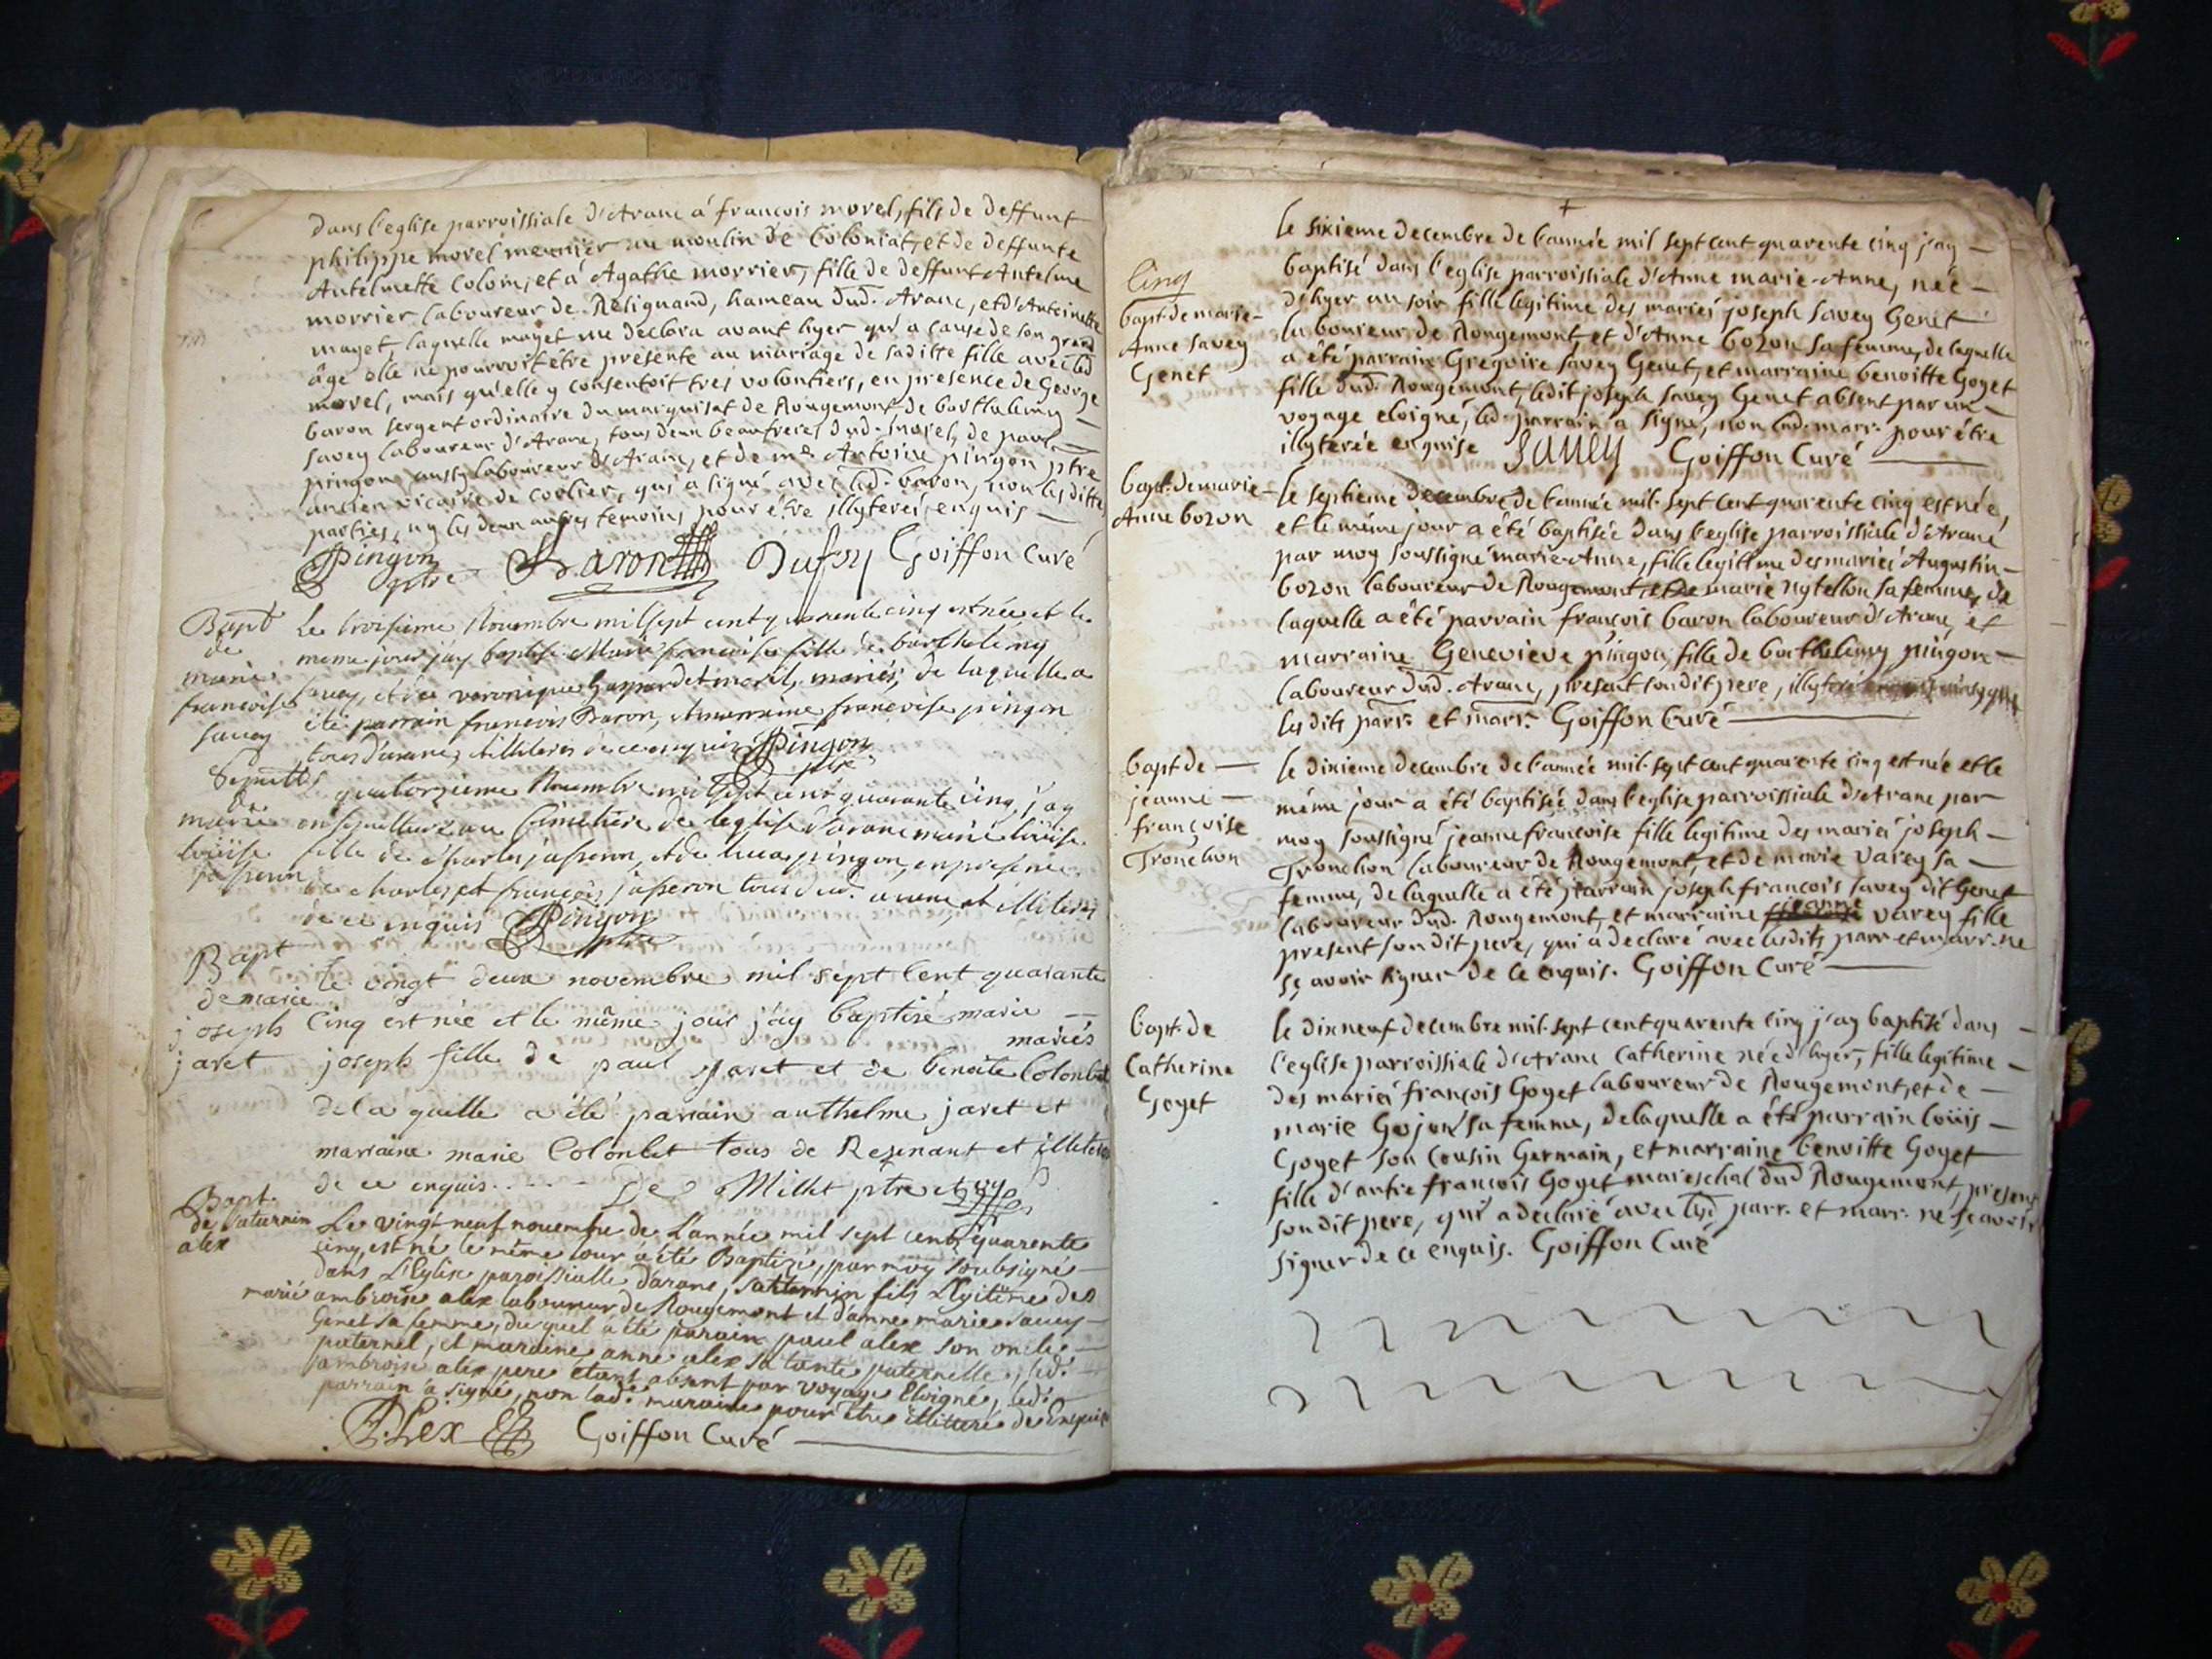 dans l'eglise parroissiale d'Aranc á françois morel, fils de deffunt
philippe morel meunier au moulin de Coloniat, et de deffunte
Antelmette Colom, et á Agathe morrier, fille de deffunt Antelme
morrier laboureur de Relignand, hameau dud. Aranc, et d'Antoinette
mayet, laquelle mayet me declara avant hyer qu'a cause de son grand
âge elle ne pourroit être presente au mariage de sa ditte fille avec led
morel, mais qu'elle y consentoit tres volontiers, en presence de George
baron sergent ordinaire du marquisat de Rougemont, de barthelemy
savey laboureur d'Aranc, tous deux beaufreres dud. morel, de paul
pingon aussy laboureur d'Aranc, et de me Antoine pingon ptre
ancien vicaire de Corlier, qui a signé avec led. baron, non les dittes
parties, ny les deux autres temoins pour être illyterés enquis
Pingon ptre Baron Dufry Goiffon Curé
Bapt de marie francoise savey
Le troisieme Novembre mil sept cent quarente cinq est née, et le
meme jour j'ay baptisé Marie francoise fille de barthelemy
savey, et de veronique Gaspardet morel, mariés, de laquelle a
été parrain francois Baron, et marraine francoise pingon
tous d'aranc, et illiterés de ce enquis Pingon ptre
Sepult de marie loüise jasseron
quatorzieme Novembre mil sept cent quarante cinq, j'ay
ensepulturé au Cimetiere de l'eglise d'aranc marie loüise
fille de charles jasseron, et de pingon, en presence
de charles et françois jasseron tous dud. aranc et illiterés
de ce enquis Pingon ptre
Bapt de marie joseph jaret
le vingt deux novembre mil sept Cent quarante
Cinq est née et le même jour j'ay baptisé marie
mariés
joseph fille de paul jaret et de benoite Colombet
de la quelle a été parrain anthelme jaret et
marraine marie Colombet tous de Resinant et illiteres
de ce enquis De Millet ptre
Bapt. de Saturnin alex
Le vingt neuf novembre de L'année mil sept cent quarente
cinq, est né le même jour a été Baptizé, par moy soubsigné
dans L'Eglise paroissialle d'aranc, saturnin fils Legitime des
marié ambroise alex laboureur de Rougemont et d'anne marie savey
Genet sa femme, du quel a été parain paul alex son oncle
paternel, et maraine anne alex sa tante paternelle, led.
ambroise alex pere étant absent par voyage Eloigné, led.
parrain a signé, non lad. maraine pour être illiterée de Enquis
ALex Goiffon Curé
Cinq
bapt. de marie-Anne savey Genet
le sixieme decembre de l'année mil sept cent quarente cinq j'ay
baptisé dans l'eglise parroissiale d'Aranc marie-Anne, née
d'hyer au soir fille legitime des mariés joseph savey Genet
laboureur de Rougemont et d'Anne bozon sa femme, de laquelle
a été parrain Gregoire savey Genet, et marraine benoitte Goyet
fille dud. Rougemont, ledit joseph savey Genet absent par un
voyage eloigné, led. parrain a signé, non lad. marr. pour être
illyterée enquise Sauey Goiffon Curé
bapt. de marie-Anne bozon
le septieme decembre de l'année mil sept cent quarente cinq est née,
et le même jour a été baptisée dans l'eglise parroissiale d'Aranc
par moy soussigné marie-Anne, fille legitime des mariés Augustin
bozon laboureur de Rougemont, et de marie Nytellon sa femme, de
laquelle a été parrain françois baron laboureur d'Aranc, et
marraine Genevieve pingon fille de barthelemy pingon
laboureur dud. Aranc, present son dit pere,
les dits parr. et marr. Goiffon Curé
bapt. de jeanne françoise Tronchon
le dixieme decembre de l'année mil sept cent quarente cinq est née et le
même jour a été baptisée dans l'eglise parroissiale d'Aranc par
moy soussigné jeanne françoise fille legitime des mariés joseph
Tronchon laboureur de Rougemont, et de marie Varey sa
femme, de laquelle a été parrain joseph francois savey dit Genet
laboureur dud. Rougemont, et marraine jeanne varey fille
present son dit pere, qui a declaré avec lesdits parr et marr. ne
sçavoir signer de ce enquis. Goiffon Curé
bapt. de Catherine Goyet
le dixneuf decembre mil sept cent quarente cinq j'ay baptisé dans
l'eglise parroissiale d'Aranc Catherine née d'hyer, fille legitime
des mariés françois Goyet laboureur de Rougemont, et de
marie Gojon sa femme, de laquelle a été parrain loüis
Goyet son Cousin Germain, et marraine benoitte Goyet
fille d'autre francois Goyet mareschal dud Rougemont, present
son dit pere, qui a declaré avec lesd parr. et marr. ne sçavoir
signer de ce enquis. Goiffon Curé